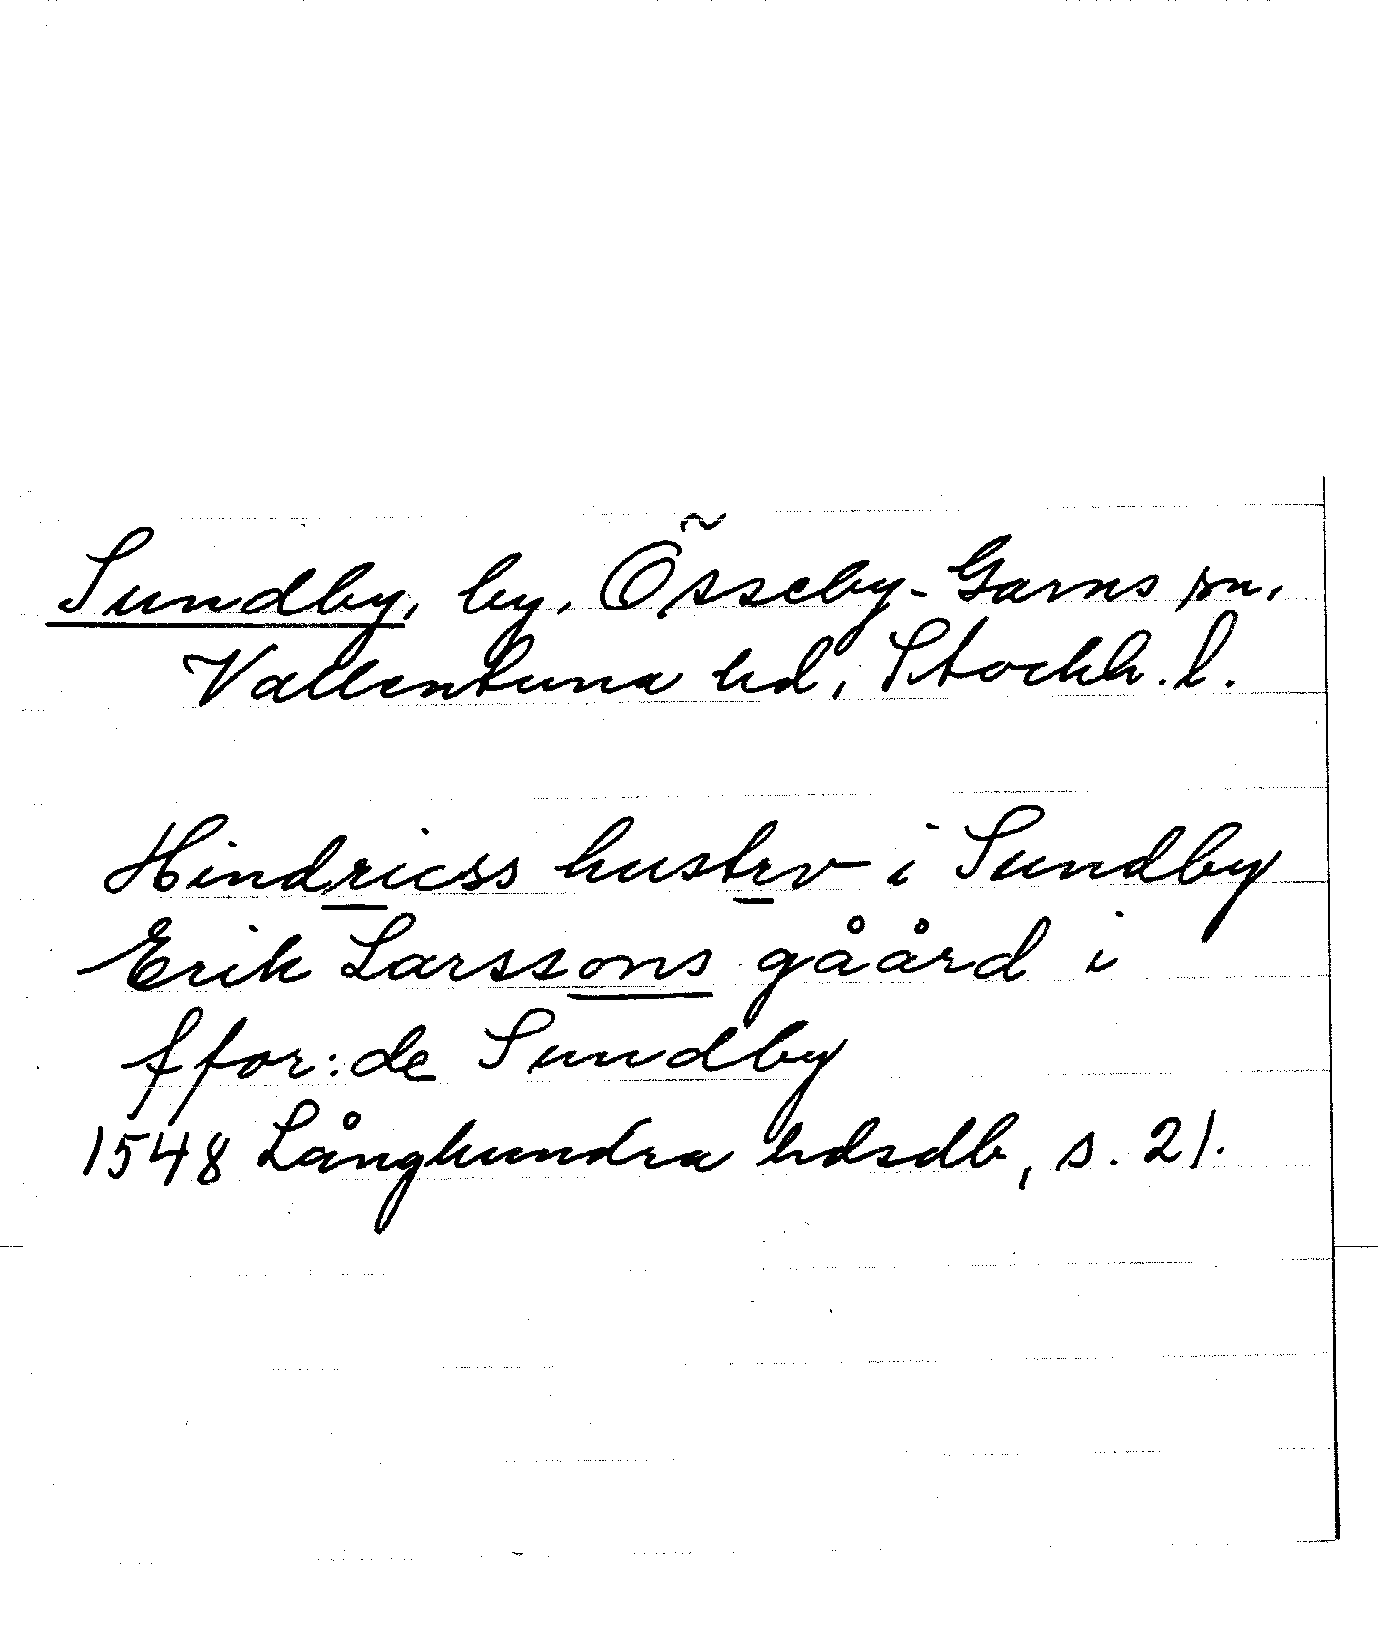 Sundby, by, Össeby-Garns sn,
Vallentuna hd, Stockh. l.
Hindricss hustrv i Sundby
Erik Larssons gåård i
ffor:de Sundby
1548 Långhundra hdsdb, s. 21.